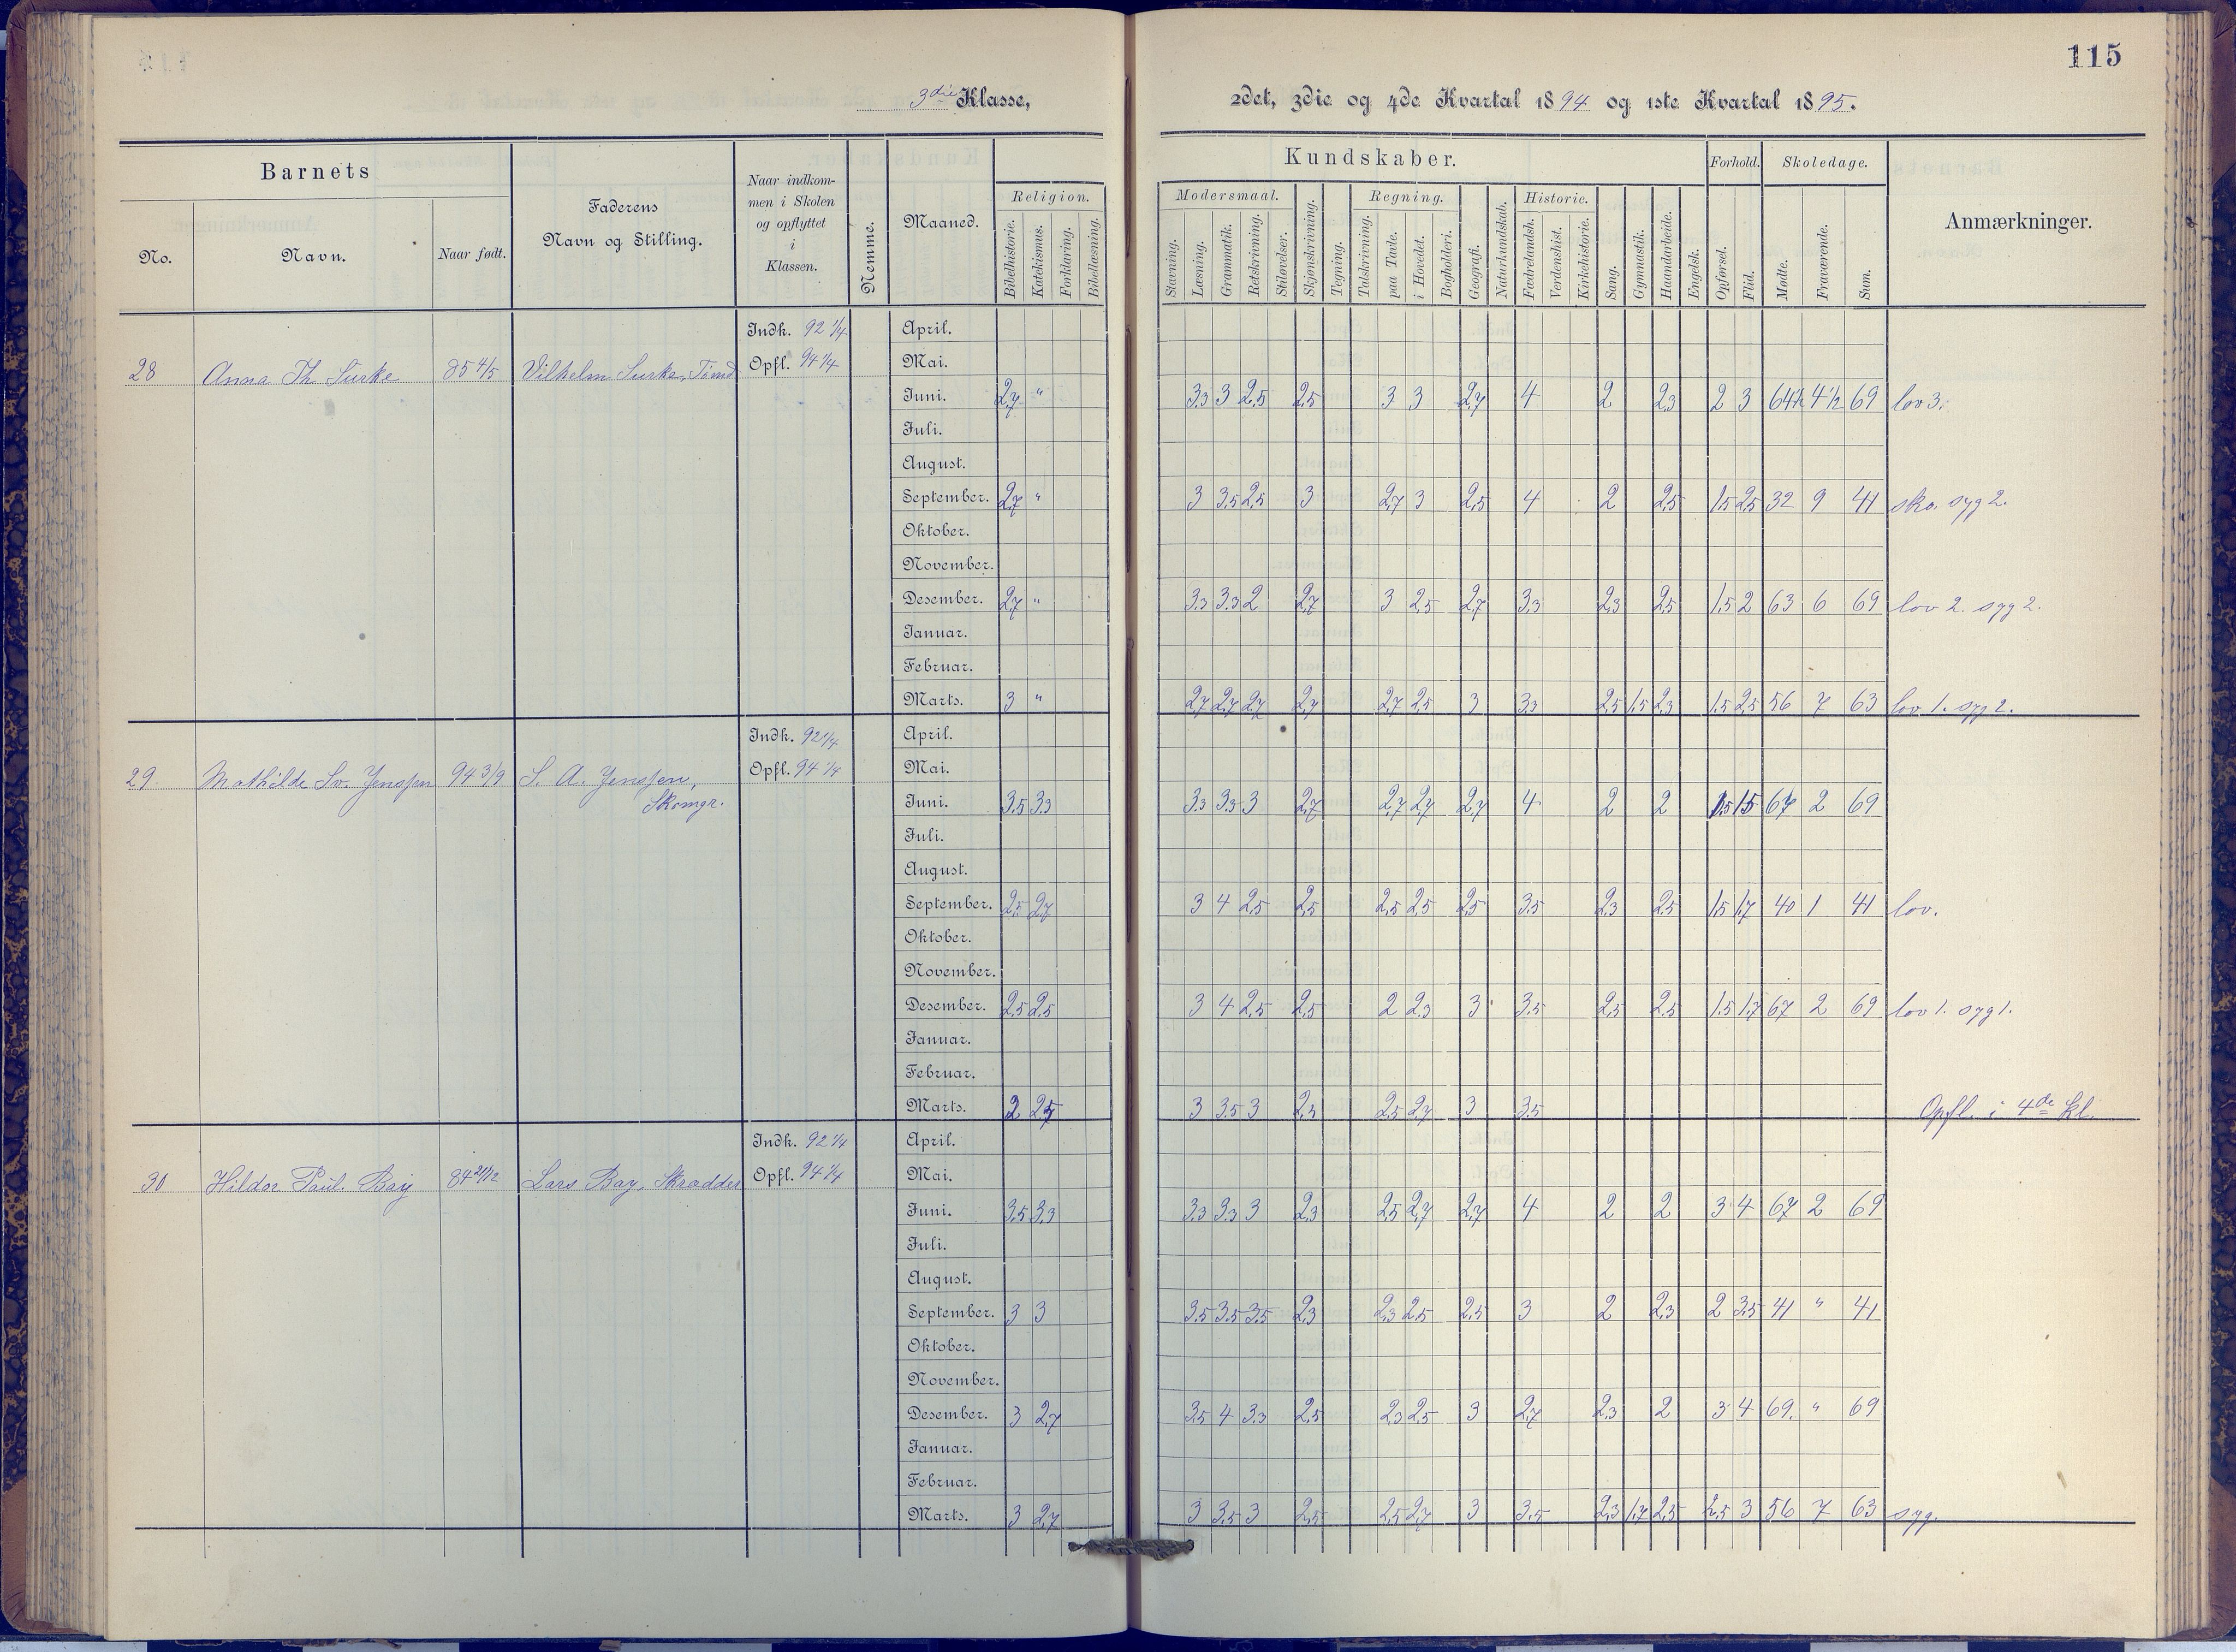 115
3die Klasse,
2det, 3die og 4de Kvartal 1894 og 1ste Kvartal 1895.
Barnets
Faderens
Navn og Stilling.
Naar indkom-
men i Skolen
og opflyttet
i
Klassen.
Nemme.
Maaned.
Religion.
Kundskaber.
Forhold.
Skoledage.
Anmærkninger.
Modersmaal.
Regning.
Historie.
No.
Navn.
Naar født.
Bibelhistorie.
Katekismus.
Forklaring.
Bibellæsning.
Stavning.
Læsning.
Grammatik.
Retskrivning.
Stiløvelser.
Skjønskrivning.
Tegning.
Talskrivning.
paa Tavle.
i Hovedet.
Bogholderi.
Geografi.
Naturkundskab.
Fædrelandsh.
Verdenshist.
Kirkehistorie.
Sang.
Gymnastik.
Haandarbeide.
Engelsk.
Opførsel.
Flid.
Mødte.
Fraværende.
Sum.
Indk. 92 1/4 April.
28 Anna Th. 85 4/5 Vilhelm Opfl. 94 1/4 Mai.
Juni. 2,7 " 3,3 3 2,5 2,5 3 3 2,7 4 2 2,3 2 3 64 1/2 4 1/2 69 lov 3.
Juli.
August.
September. 2,7 " 3 3,5 2,5 3 2,7 3 2,5 4 2 2,5 1,5 2,5 32 9 41 sko. syg 2.
Oktober.
November.
Desember. 2,7 " 3,3 3,3 2 2,7 3 2,5 2,7 3,3 2,3 2,5 1,5 2 63 6 69 lov 2. syg 2.
Januar.
Februar.
Marts. 3 " 2,7 2,7 2,7 2,7 2,7 2,5 3 3,3 2,5 1,5 2,3 1,5 2,5 56 7 63 lov 1. syg 2.
Indk. 92 1/4 April.
29 Mathilde Sv. Jenssen 94 3/9 S. A. Jenssen, Opfl. 94 1/4 Mai.
Skomgr.
Juni. 3,5 3,3 3,3 3,3 3 2,7 2,7 2,7 2,7 4 2 2 1,5 1,5 67 2 69
Juli.
August.
September. 2,5 2,7 3 4 2,5 2,5 2,5 2,5 2,5 3,5 2,3 2,5 1,5 1,7 40 1 41 lov.
Oktober.
November.
Desember. 2,5 2,5 3 4 2,5 2,5 2 2,3 3 3,5 2,5 2,5 1,5 1,7 67 2 69 lov 1. syg 1.
Januar.
Februar.
Marts. 2 2,7 3 3,5 3 2,3 2,5 2,7 3 3,5 Opfl. i 4de kl.
Indk. 92 1/4 April.
30 Hildor Paul. Bay 84 21/12 Lars Bay, Skrædder Opfl. 94 1/4 Mai.
Juni. 3,5 3,3 3,3 3,3 3 2,3 2,5 2,7 2,7 4 2 2 3 4 67 2 69
Juli.
August.
September. 3 3 3,5 3,5 3,5 2,3 2,3 2,5 2,5 3 2 2,3 2 3,5 41 " 41
Oktober.
November.
Desember. 3 2,7 3,5 4 3,3 2,5 2,3 2,5 3 2,7 2,3 2 3 4 69. " 69
Januar.
Februar.
Marts. 3 2,7 3 3,5 3 2,5 2,5 2,7 3 3,5 2,3 1,7 2,5 2,5 3 56 7 63 syg.